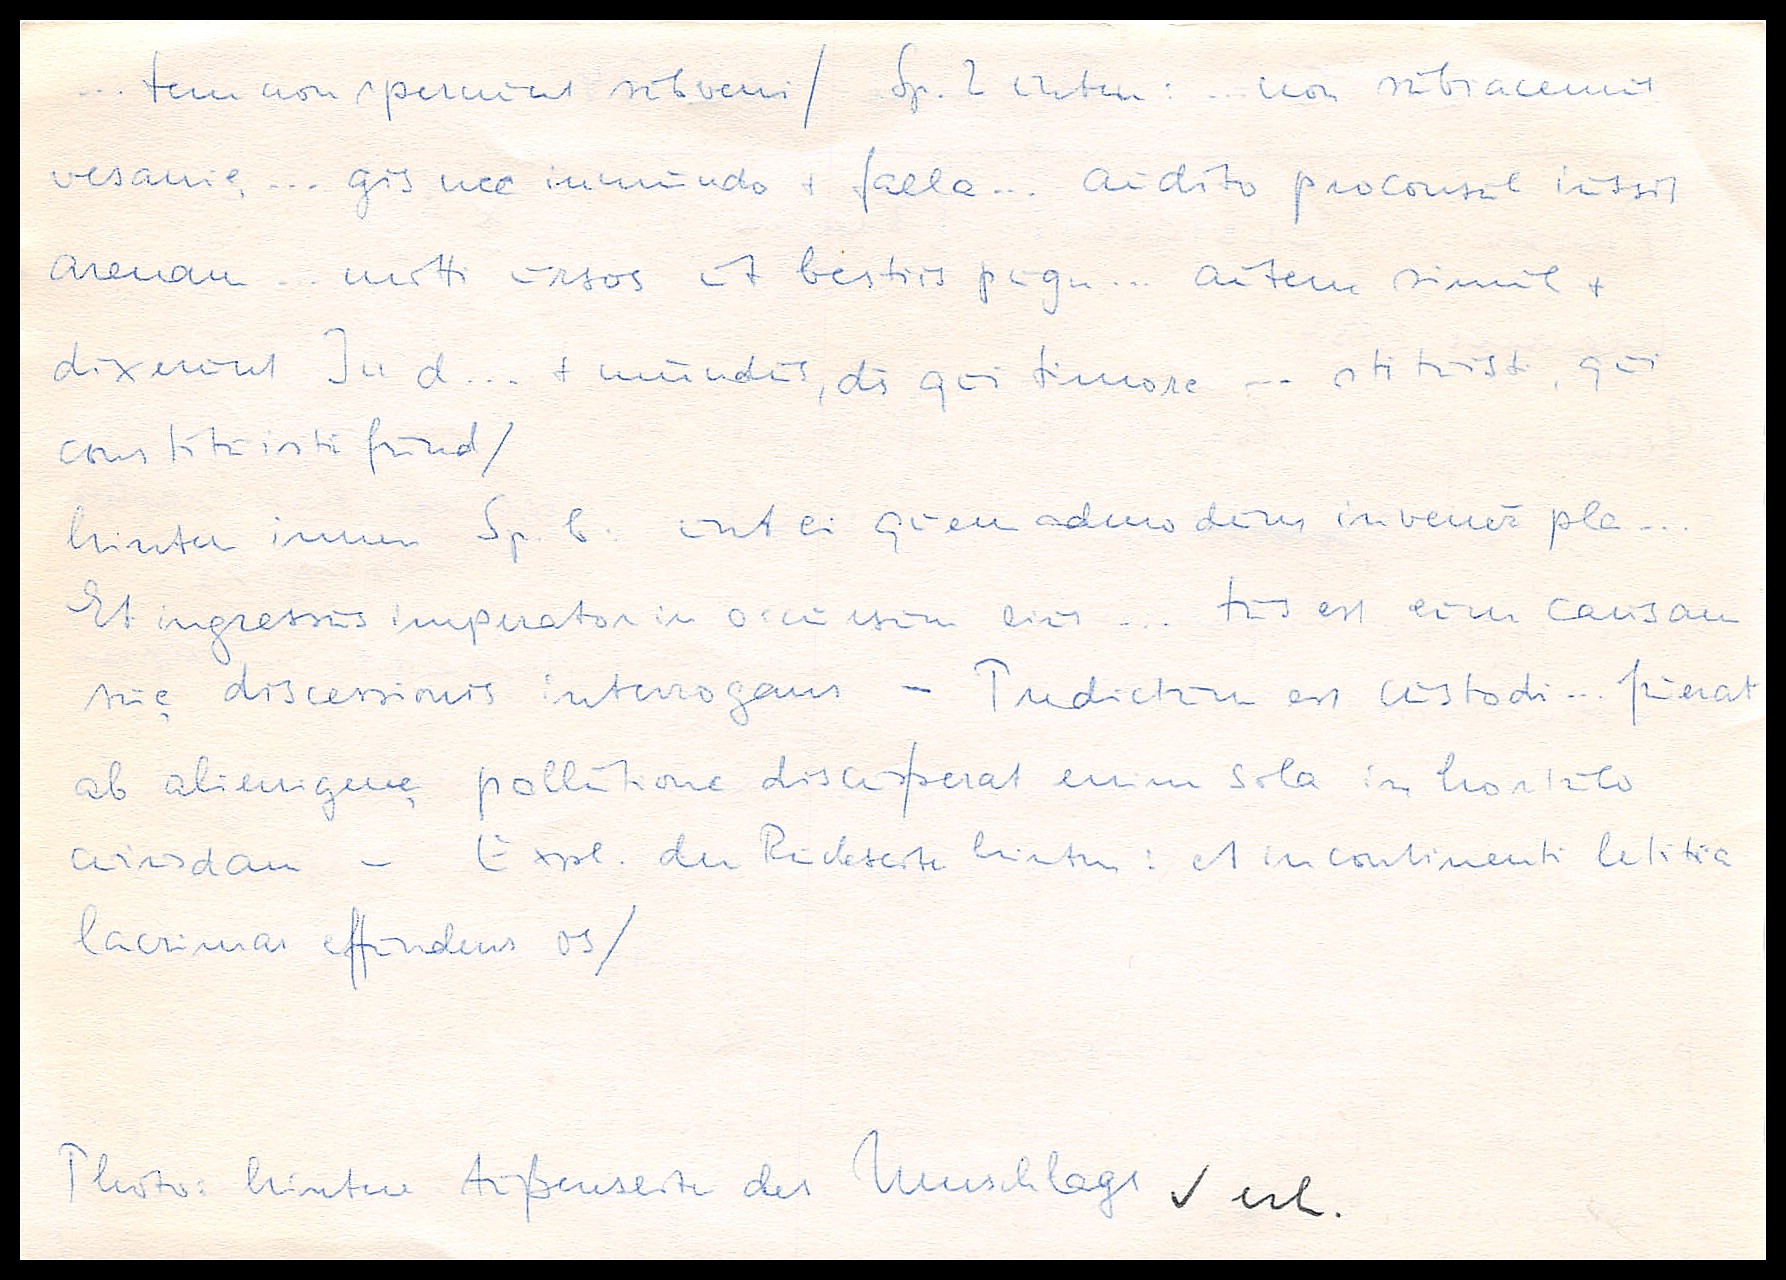 ... tem non spernent subveni/ Sp. 2 unten: ... non subiacemus
vesanię ... gis nec inmundo + falla... audito proconsul iussit
arenam ... mitti ursos ut bestiis pugn... autem simul +
dixerunt In d... + mundus, ds qui timore ... stituisti, qui
constituisti fund/
hinten innen Sp. b: unt ei quemadmodum invener pla...
Et ingressus imperator in occursum eius ... tus est eum causam
suę discessionis interrogans – Predictum est custodi... fuerat
ab alienigenę pollutione discesserat enim sola in hortulo
cuiusdam – Expl. der Rückseite hinten: et incontinenti letitia
lacrimas effundens os/
Photo: hintere Außenseite des Umschlags ✓ erl.